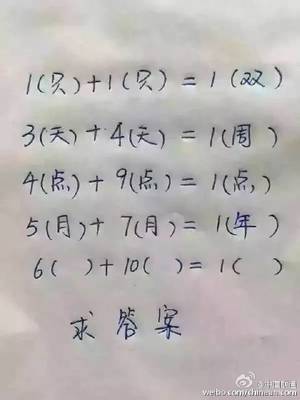 1(只)+1(只)=1(双)
3(天)+4(天)=1(周)
4(点)+9(点)=1(点)
5(月)+7(月)=1(年)
6( )+10( )=1( )
求答案
weibo.com/chineam